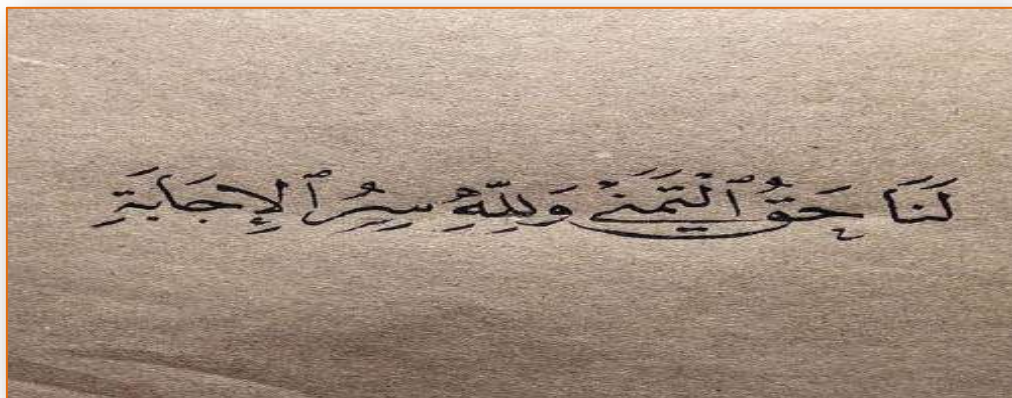 لَنَا حَقُّ ٱلْتَّمَنِّي وَلِلَّهِ سِرُّ ٱلْإِجَابَةِ